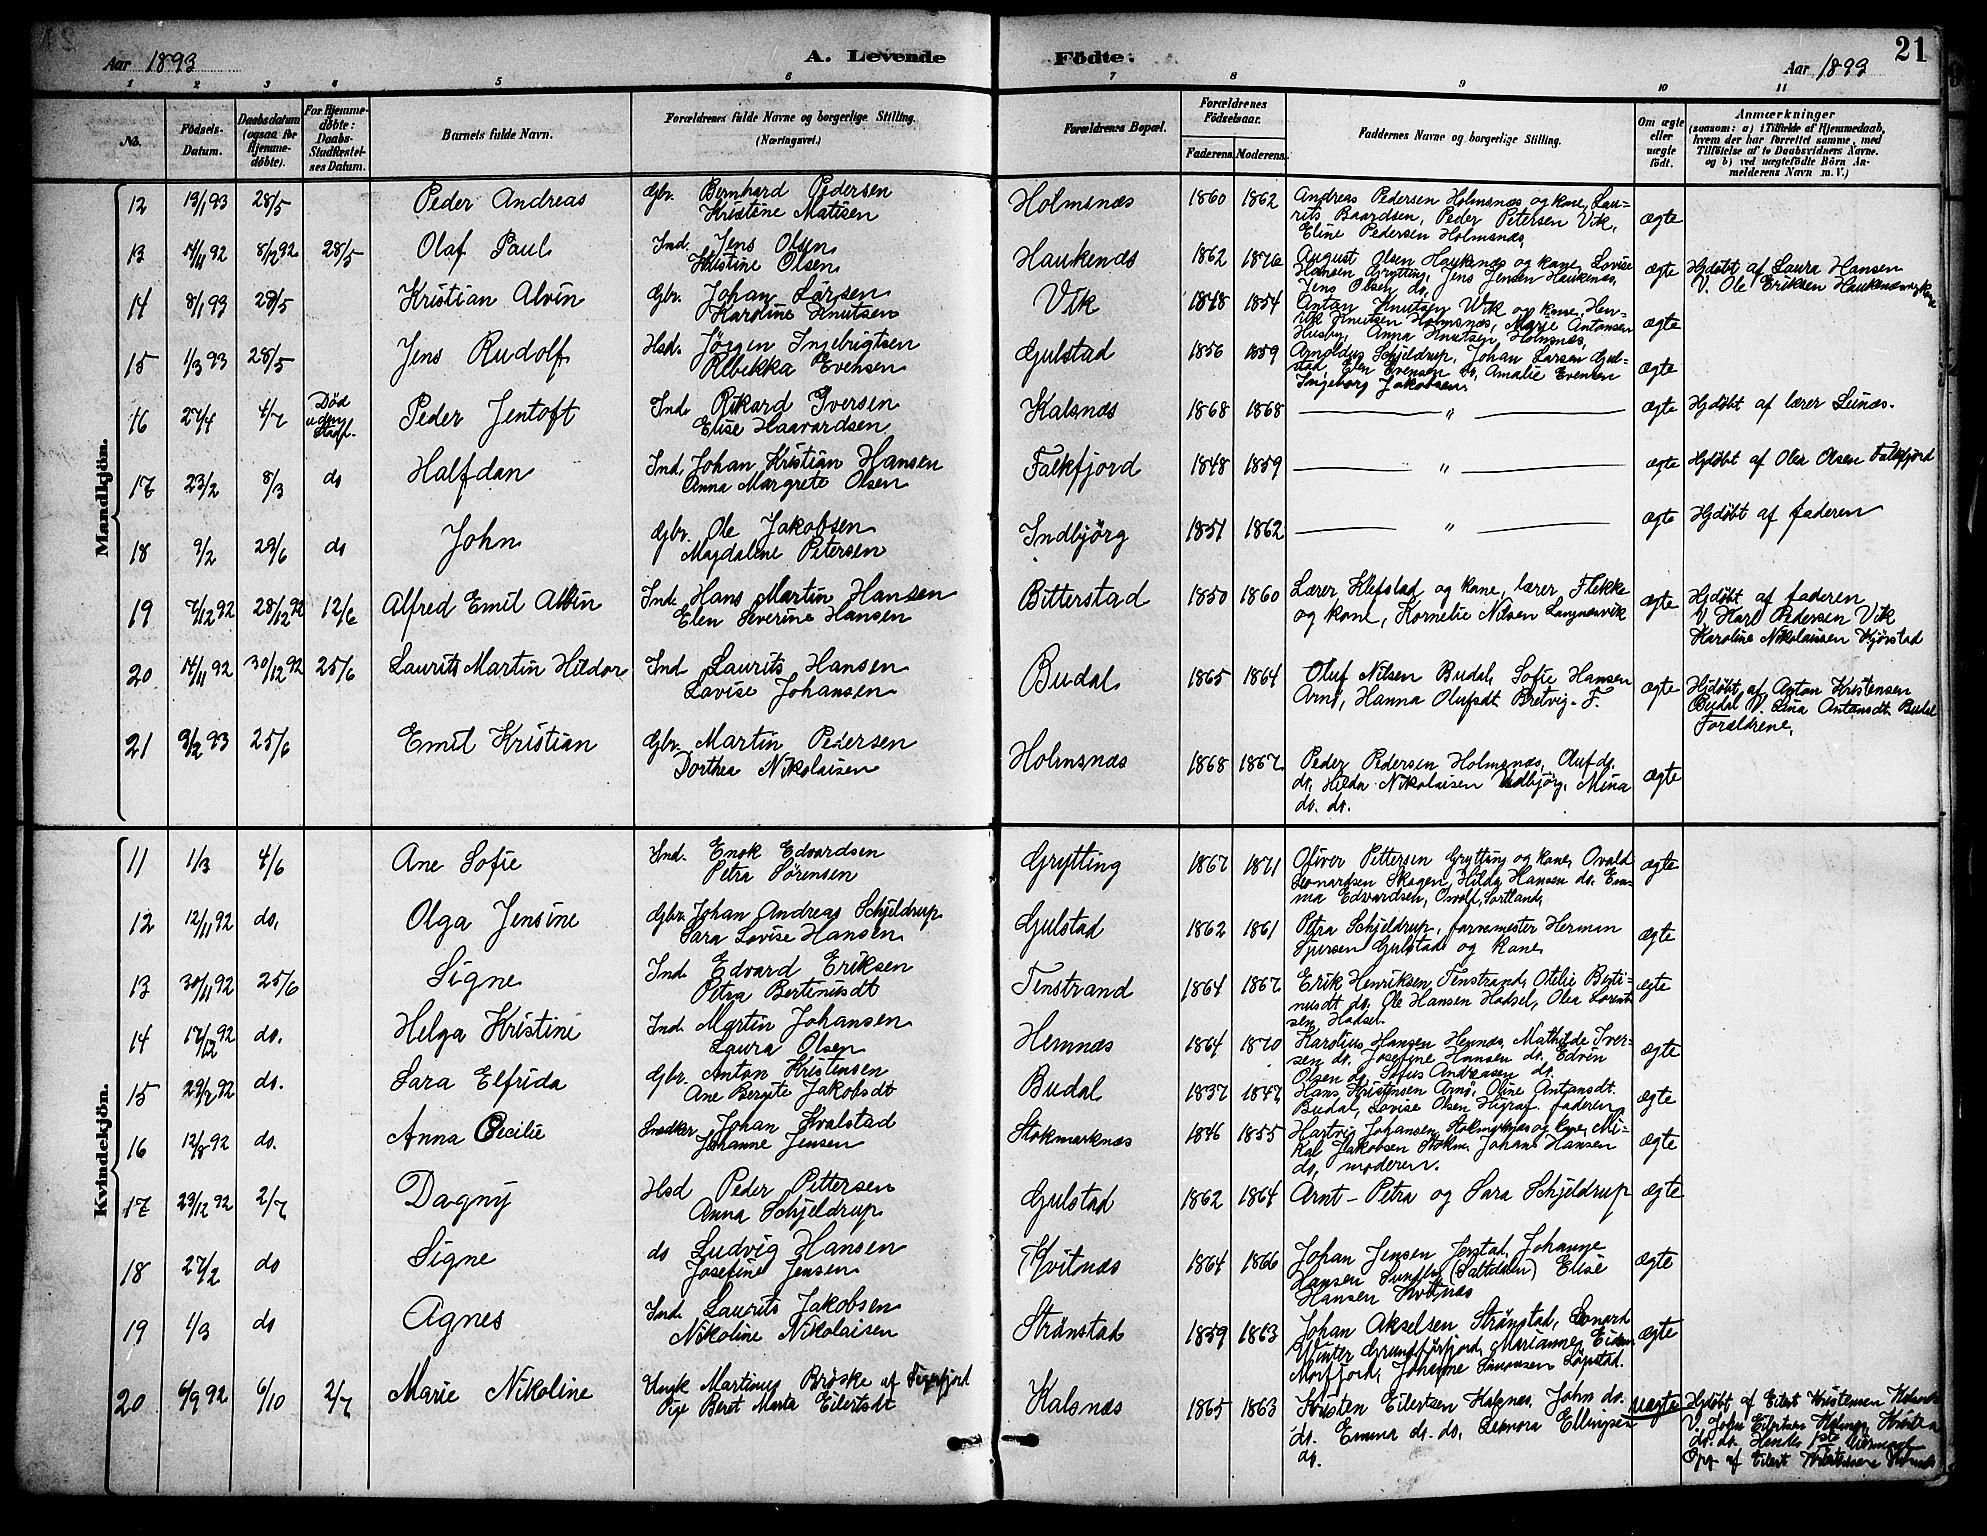 Aar 1893
A. Levende
Födte.
Aar 1893
21
1 2 3 4 5 6 7 8 9 10 11
No.
Födsels-Datum.
Daabsdatum (ogsaa för Hjemme-döbte).
For Hjemme-döbte: Daabs-Stadfæstel-ses Datum.
Barnets fulde Navn.
Forældrenes fulde Navne og borgerlige Stilling. (Næringsvei.)
Forældrenes Bopæl.
Forældrenes Födselsaar.
Faderens. Moderens.
Faddernes Navne og borgerlige Stilling.
Om ægte eller uægte födt.
Anmærkninger
(saasom: a) i Tilfælde af Hjemmedaab,
hvem der har forrettet samme, med
Tilföielse af to Daabsvidners Navne.
og b) ved uægtefödte Börn An-
melderens Navn m. V.)
Mandkjön.
12 13/1 93 28/5 Peder Andreas Gbr. Bernhard Pedersen Holmsnæs 1860 1862 Andreas Pedersen Holmsnæs og kone, Lau-
Kristine Matisen rits Baardsen, Peder Petersen Vik, ægte
Eline Pedersen Holmsnæs
13 14/11 92 8/12 92 28/5 Olaf Paul Ind. Jens Olsen Haukenæs 1862 1876 August Olsen Haukenæs og kone, Lovise ægte Hjdöbt af Laura Hansen
Kristine Olsen Hansen Grytting, Jens Jensen Haukenæs, V. Ole Eriksen Haukenæs og kone
Jens Olsen do.
14 8/1 93 28/5 Kristian Alvin Gbr. Johan Larsen Vik 1848 1854 Antan Knutsen Vik og kone, Hen-
Karoline Knutsen rik Knutsen Holmsnæs, Marie Antonsen ægte
Husby, Anna Knutsen Holmsnæs,
15 1/3 93 28/5 Jens Rudolf Hsd. Jörgen Ingebrigtsen Gulstad 1856 1859 Arnoldus Schjeldrup, Johan Larsen Gul-
Rebekka Evensen stad, Elen Evensen do, Amalie Evensen ægte
Ingeborg Jakobsen
16 27/4 4/7 Död uden Stadf. Peder Jentoft Ind. Rikard Iversen Kalsnæs 1868 1868 — „ — ægte Hjdöbt af lærer Lunås.
Elise Haavardsen
17 23/2 8/3 do Halfdan Ind. Johan Kristian Hansen Falkfjord 1848 1859 — „ — ægte Hjdöbt af Olea Olsen Falkfjord
Anna Margrete Olsen
18 9/2 29/6 do John Gbr. Ole Jakobsen Indbjörg 1851 1862 — „ — ægte Hjdöbt af faderen
Magdalene Petersen
19 7/12 92 28/12 92 12/6 Alfred Emil Albin Ind. Hans Martin Hansen Bitterstad 1850 1860 Lærer Klefstad og kone, lærer Flekke ægte Hjdöbt af faderen
Elen Severine Hansen og kone, Kornelie Nilsen Langnesvik V. Karl Pedersen Vik
Karoline Nikolaisen Kjörstad
20 14/11 92 30/12 92 25/6 Laurits Martin Hildor Ind Laurits Hansen Budal 1865 1864 Oluf Nilsen Budal, Sofie Hansen ægte Hjdöbt af Anton Kristensen
Lovise Johansen Arnö, Hanna Olufsdt Bretvig. F. Budal V. Lina Antonsdt. Budal
Forældrene.
21 9/2 93 25/6 Emil Kristian Gbr. Martin Pedersen Holmsnæs 1868 1867 Peder Pedersen Holmsnæs, Oluf do.
Dorthea Nikolaisen do, Hilda Nikolaisen Indbjörg, Mina ægte
do. do.
Kvindekjön.
11 1/3 4/6 Ane Sofie Ind. Enok Edvardsen Grytting 1867 1871 Oliver Pettersen Grytting og kone, Ovald
Petra Sörensen Leonardsen Skagen, Hilda Hansen do. Em- ægte
ma Edvardsen, Ovald, Sortland,
12 12/11 92 do. Olga Jensine Gbr. Johan Andreas Schjeldrup Gulstad 1862 1861 Petra Schjeldrup, farvemester Herman
Sara Lovise Hansen Sjursen Gulstad og kone ægte
13 30/11 92 25/6 Signe Ind. Edvard Eriksen Tenstrand 1864 1867 Erik Henriksen Tenstrand, Otelie Berti-
Petra Bertinusdt nusdt do. Ole Hansen Hadsel, Olea Lorent- ægte
sen Hadsel
14 17/12 92 do. Helga Kristine Ind. Martin Johansen Hemnæs 1864 1870 Karolius Hansen Hemnæs, Mathilde Iver-
Laura Olsen sen do. Josefine Hansen do. Edvin ægte
Olsen do. Sofus Andreasen do.
15 29/12 92 do. Sara Elfrida Gbr. Anton Kristensen Budal 1837 1847 Hans Kristensen Arnö, Oline Antonsdt.
Ane Bergite Jakobsdt Budal, Lovise Olsen faderen ægte
16 12/8 92 do. Anna Cecilie Snedker Johan Kvalstad Stokmarknæs 1846 1855 Hartvig Johansen Stokmarknæs og kone, Mi-
Johanne Jensen kal Jakobsen Stokm. Johan Hansen ægte
do, moderen.
17 29/12 92 2/7 Dagny Hsd Peder Pettersen Gulstad 1862 1864 Arnt – Petra og Sara Schjeldrup ægte
Anna Schjeldrup
18 27/2 do Signe do Ludvig Hansen Kvitnæs 1864 1866 Johan Jensen Jerstad, Johanne
Josefine Jensen Hansen Sundby (Saltdalen) Elise ægte
Hansen Kvitnæs
19 1/3 do Agnes Ind. Laurits Jakobsen Strönstad 1859 1863 Johan Akselsen Strönstad, Leonard
Nikoline Nikolaisen Winter Grundförfjord, Marianne ægte
Morfjord, Johanne Simonsen
20 6/9 92 6/10 2/7 Marie Nikoline Ungk Martinus Bröske af Tigerfjord Kalsnæs 1865 1863 Kristen Eilertsen Kalsnæs, John do. uægte Hjdöbt af Eilert Kristensen Kalsnæs
Pige Beret Marta Eilertsdt do. Emma do. do, Leonora Ellingsen V. John Eilertsen Kalsnæs
do. do. do.
Opg. af Eilert Kristensen